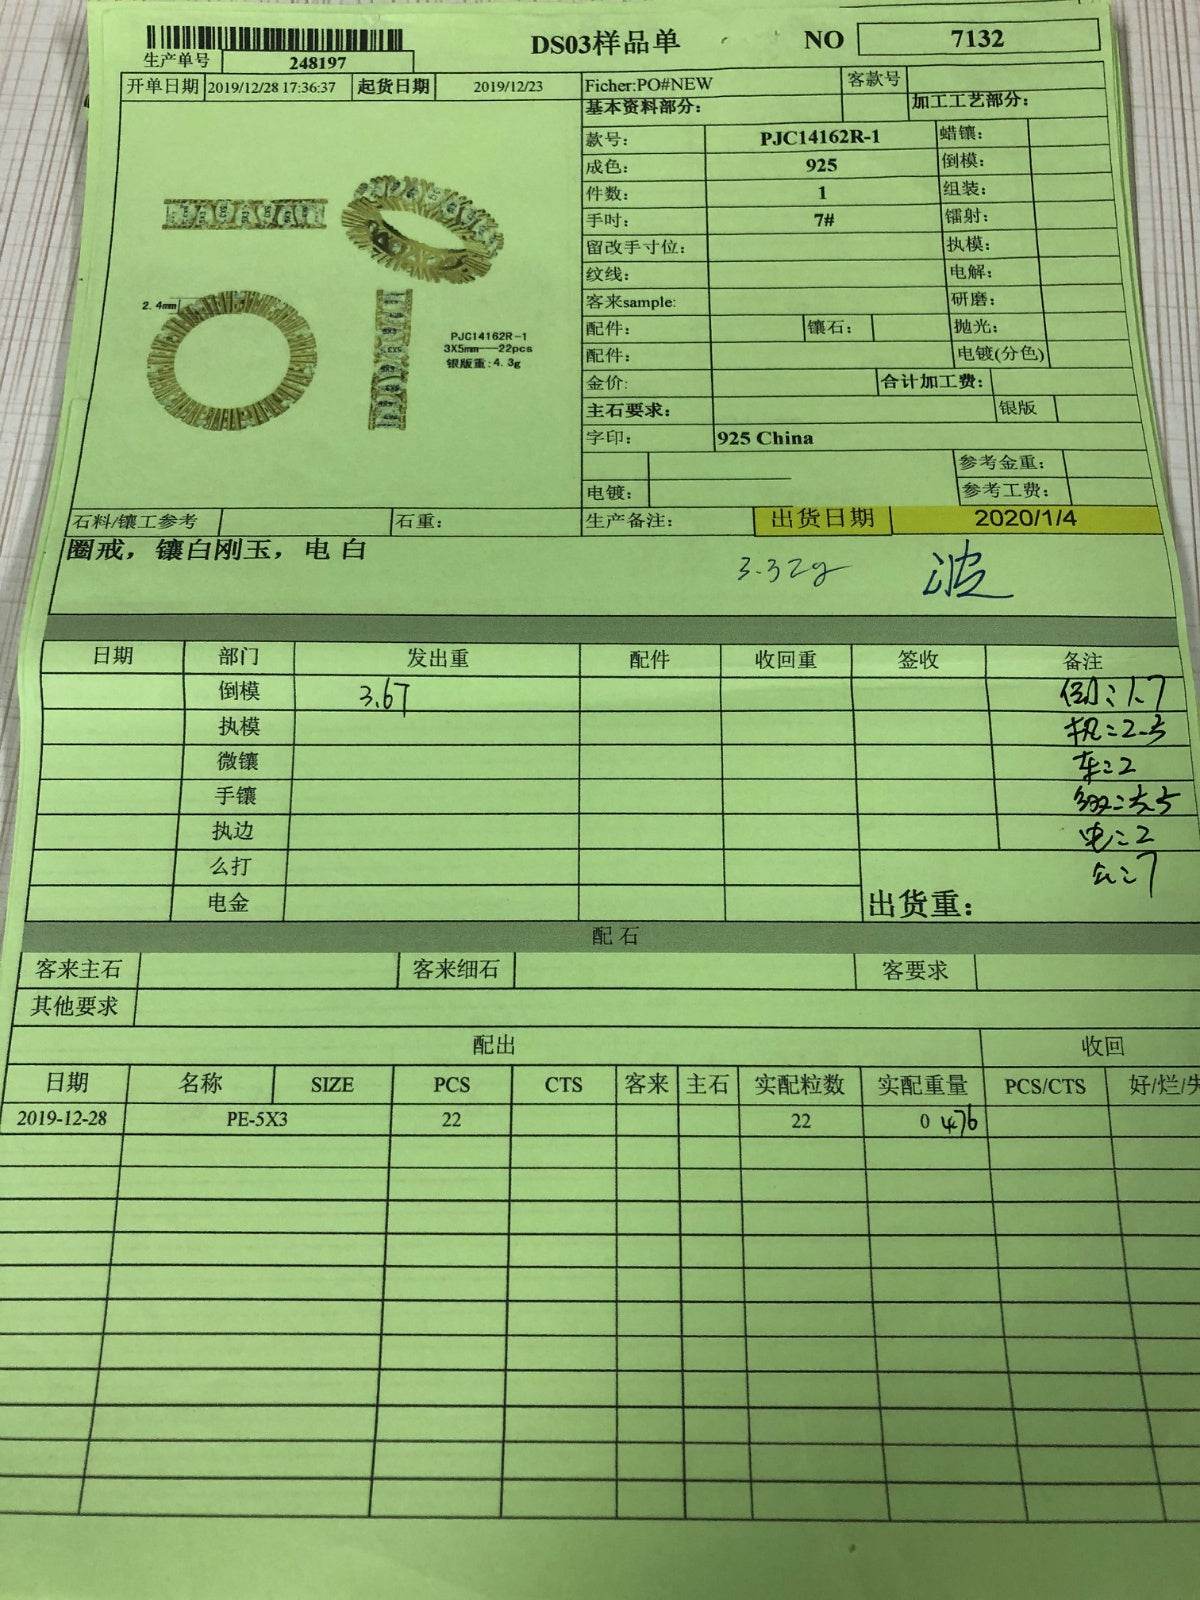 DS03样品单 NO 7132
生产单号 248197
开单日期 2019/12/28 17:36:37 起货日期 2019/12/23 Ficher:PO#NEW 客款号
基本资料部分: 加工工艺部分:
款号: PJC14162R-1 蜡镶:
成色: 925 倒模:
件数: 1 组装:
手吋: 7# 镭射:
留改手寸位: 执模:
纹线: 电解:
客来sample: 研磨:
配件: 镶石: 抛光:
配件: 电镀(分色)
金价: 合计加工费:
主石要求: 银版
字印: 925 China
参考金重:
电镀: 参考工费:
2.4mm
PJC14162R-1
3X5mm---22pcs
银版重:4.3g
石料/镶工参考 石重: 生产备注: 出货日期 2020/1/4
圈戒，镶白刚玉，电 白
3.32g 波
日期 部门 发出重 配件 收回重 签收 备注
倒模 3.67 倒:1.7
执模 执:2.5
微镶 车:2
手镶
执边 电:2
么打 么:7
电金 出货重:
配 石
客来主石 客来细石 客要求
其他要求
配出 收回
日期 名称 SIZE PCS CTS 客来 主石 实配粒数 实配重量 PCS/CTS 好/烂/失
2019-12-28 PE-5X3 22 22 0 476